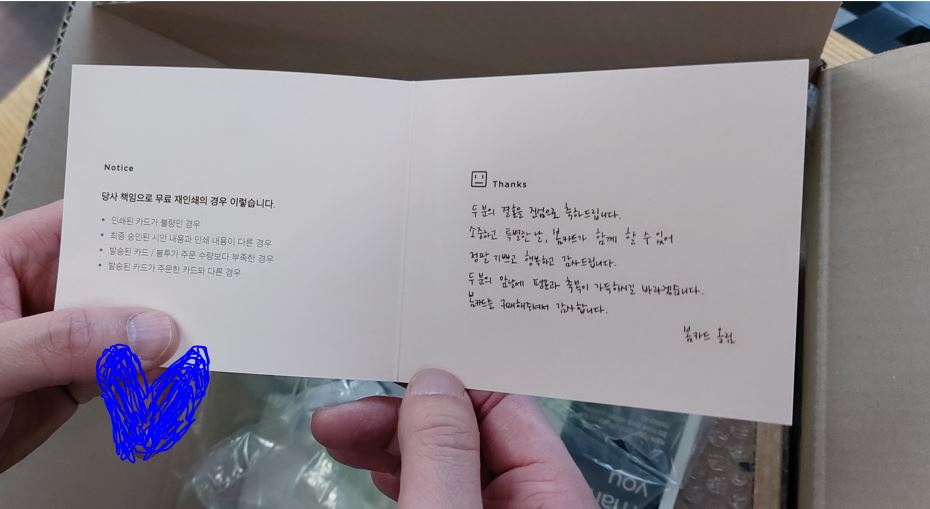 Notice
당사 책임으로 무료 재인쇄의 경우 이렇습니다.
• 인쇄된 카드가 불량인 경우
• 최종 승인된 시안 내용과 인쇄 내용이 다른 경우
• 발송된 카드 / 봉투가 주문 수량보다 부족한 경우
• 발송된 카드가 주문한 카드와 다른 경우
Thanks
두 분의 결혼을 진심으로 축하드립니다.
소중하고 특별한 날, 봄카드가 함께 할 수 있어
정말 기쁘고 행복하고 감사드립니다.
두 분의 앞날에 평온과 축복이 가득하시길 바라겠습니다.
봄카드를 구매해주셔서 감사합니다.
봄카드 올림
you